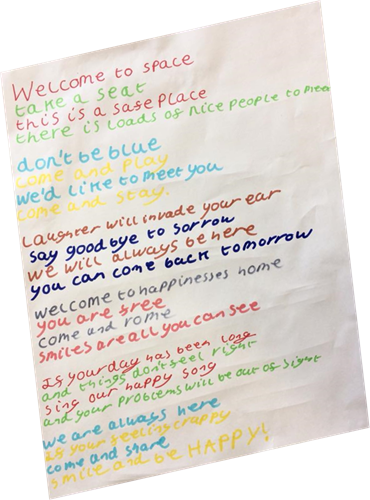 Welcome to space
take a seat
this is a safe place
there is loads of nice people to meet
don't be blue
come and play
we'd like to meet you
come and stay.
Laughter will invade your ear
say goodbye to sorrow
we will always be here
you can come back tomorrow
welcome to happinesses home
you are free
come and rome
smiles are all you can see
If your day has been long
and things don't feel right
sing our happy song
and your problems will be out of sight
we are always here
If your feeling crappy
come and share
smile and be HAPPY!